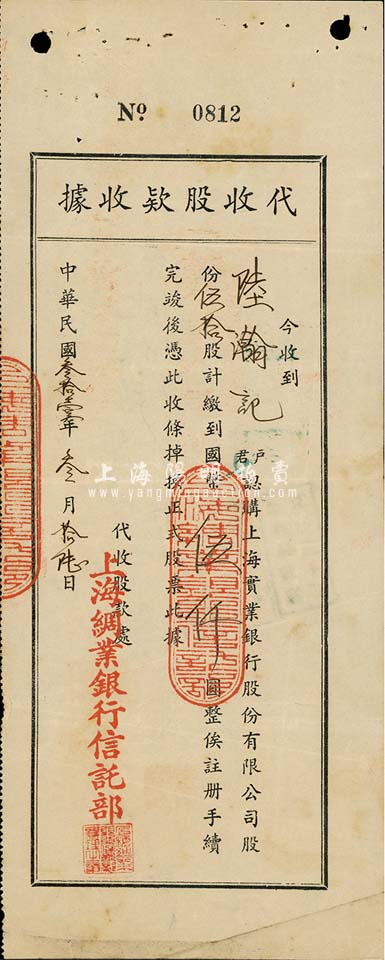 № 0812
據收欵股收代
今收到
陸瀚記 君戶認購上海實業銀行股份有限公司股
份伍拾股計繳到國幣伍仟圓整俟註册手續
完竣後憑此收條掉換正式股票此據
代收股款處
上海綢業銀行信託部
中華民國叁拾壹年叁月拾陸日
上海陽明拍賣
www.yangmingauction.com